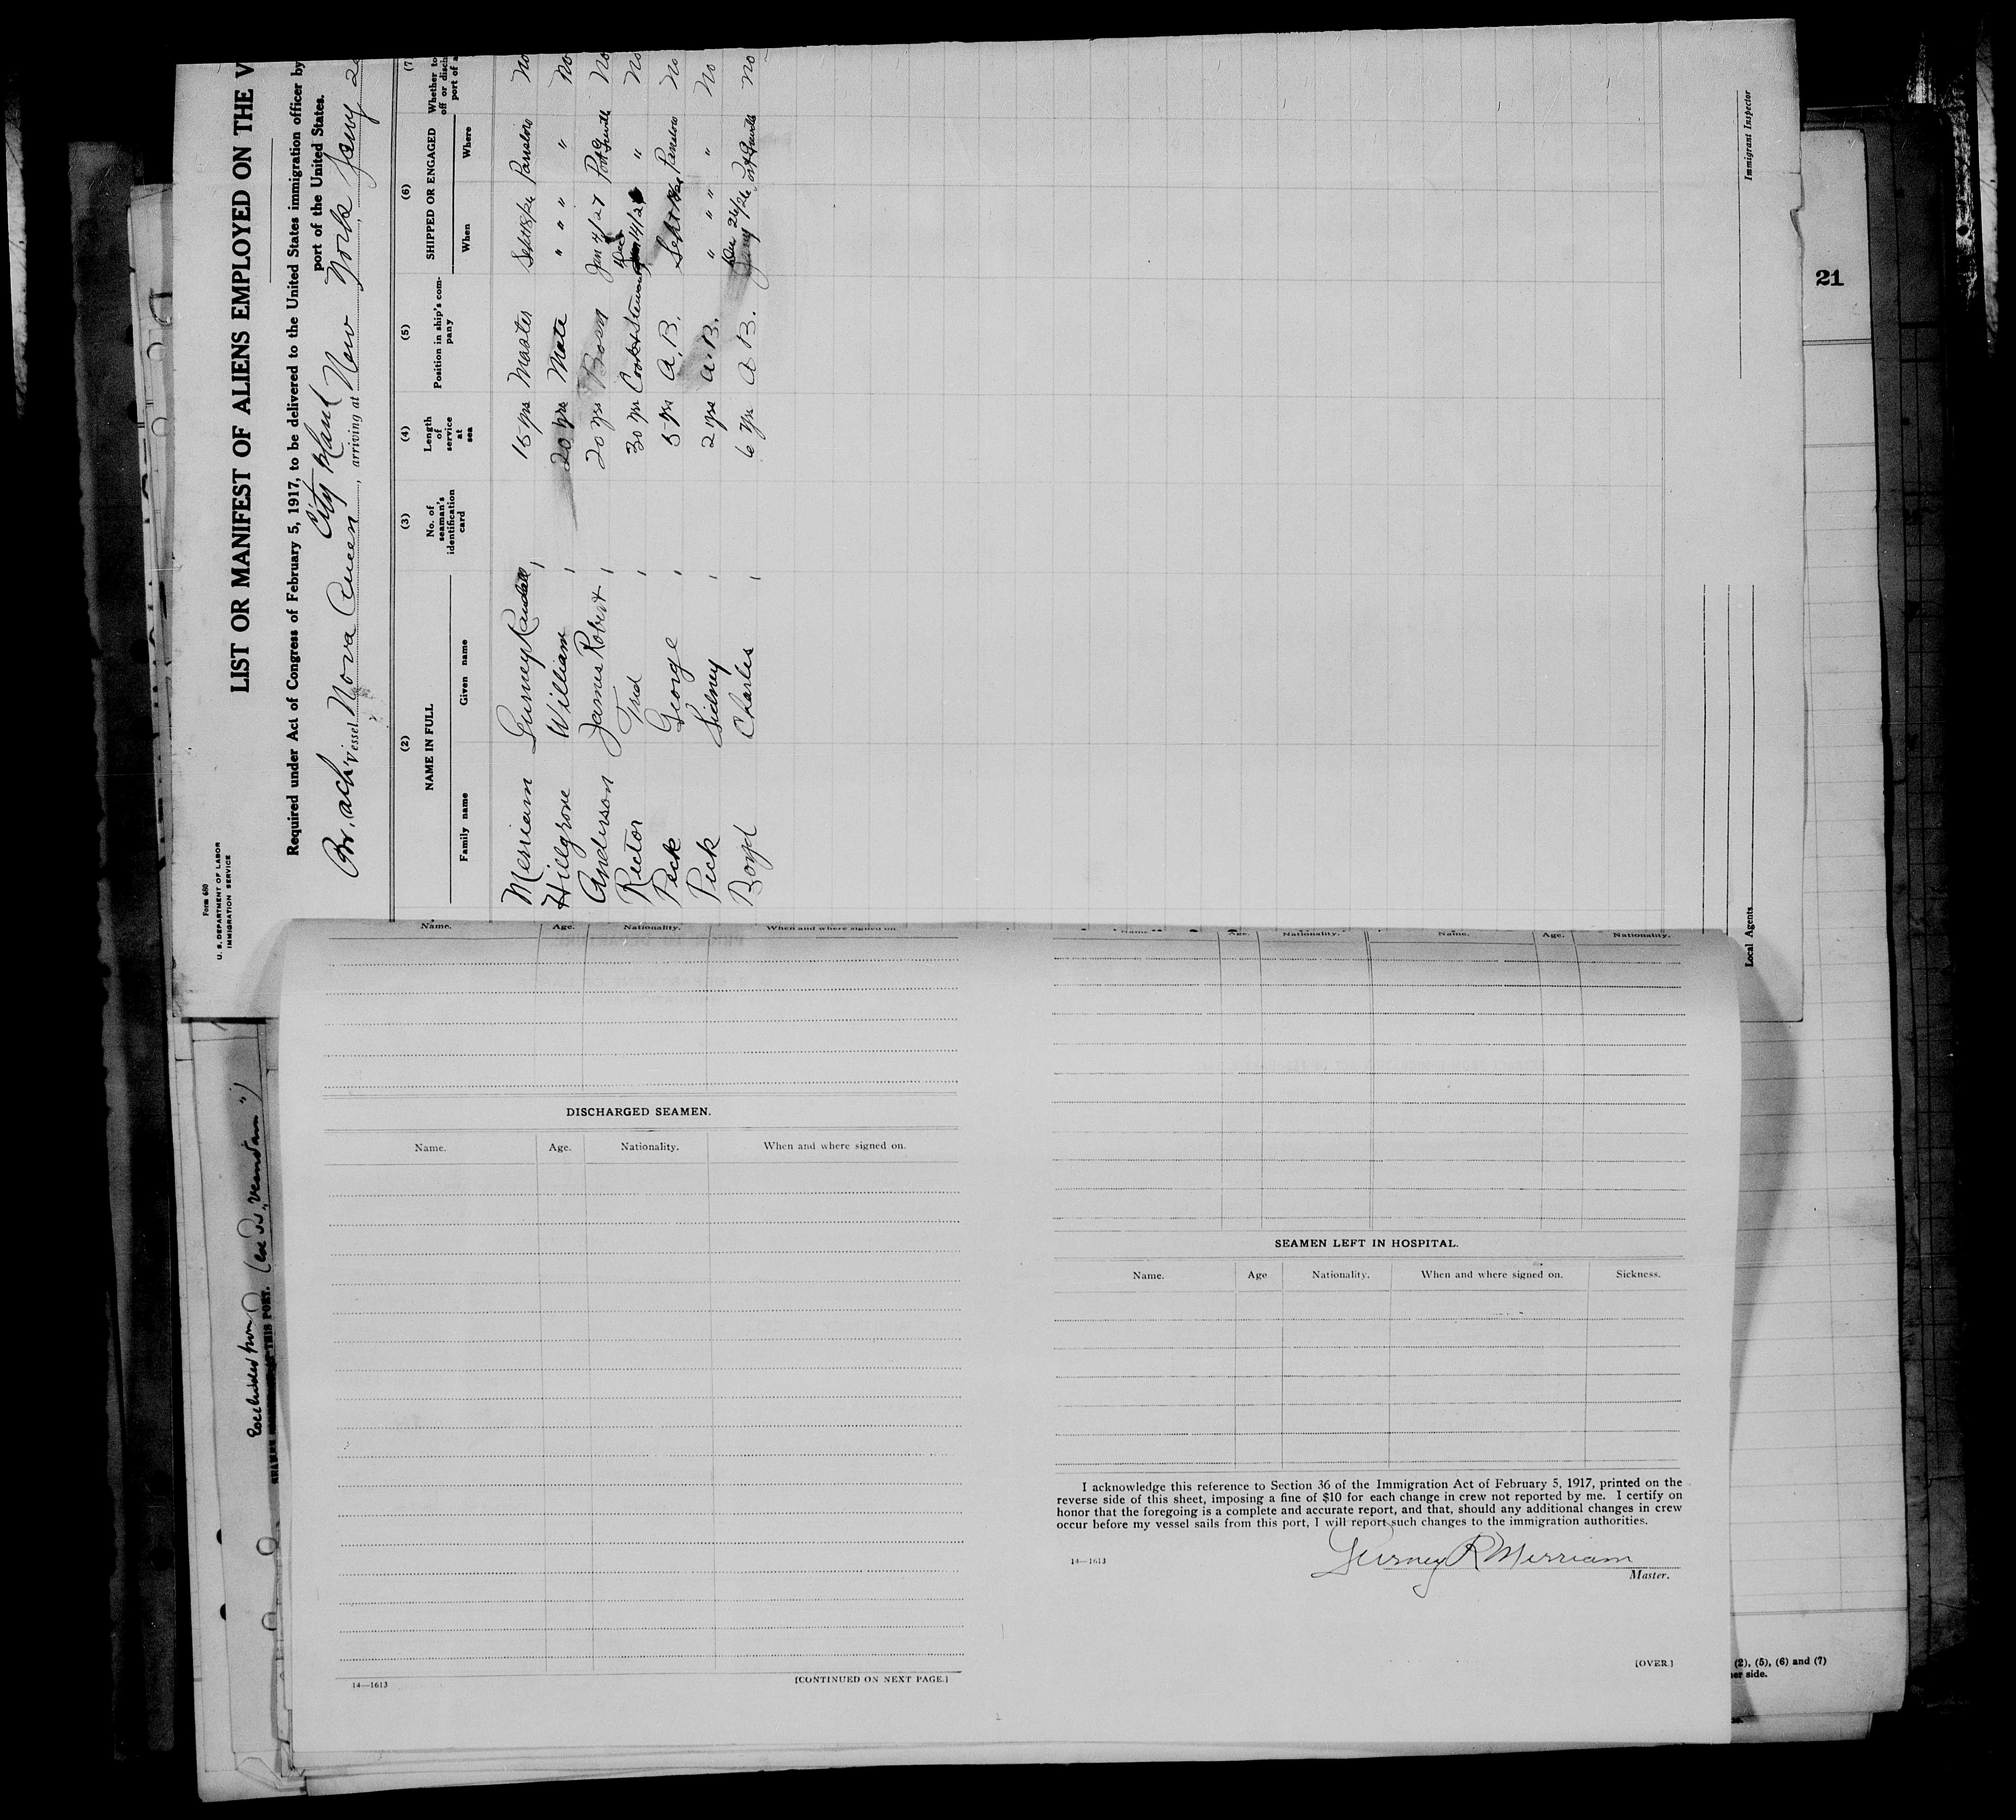 Form 680
U. S. DEPARTMENT OF LABOR
IMMIGRATION SERVICE
LIST OR MANIFEST OF ALIENS EMPLOYED ON THE V
Required under Act of Congress of February 5, 1917, to be delivered to the United States immigration officer by
port of the United States.
City Island
Vessel Nova Queen, arriving at New York Jany
(2) (3) (4) (5) (6) (7
NAME IN FULL No. of seaman's identification card Length of service at sea Position in ship's company SHIPPED OR ENGAGED Whether to
off or disch
port of a
Family name Given name When Where
Merriam Gurney Randall 15 yrs Master Sept 18/26 Parrsboro No
Hillgrove William 20 yrs Mate " " " " No
Anderson James Robert 20 yrs Bosn Jan 4/27 Port Greville No
Rector Fred 30 yrs Cook & Steward Dec 14/26 " No
Peck George 5 yrs A.B. Sept Parrsboro No
Peck Sidney 2 yrs A.B. " " " " No
Boyd Charles 6 yrs A B. Dec 24/26 Port Greville No
Immigrant Inspector
Local Agents
21
Name. Age. Nationality. When and where signed on
DISCHARGED SEAMEN.
Name. Age. Nationality. When and where signed on.
14—1613
[CONTINUED ON NEXT PAGE.]
Name Age. Nationality. Name. Age. Nationality.
SEAMEN LEFT IN HOSPITAL.
Name. Age Nationality. When and where signed on. Sickness.
I acknowledge this reference to Section 36 of the Immigration Act of February 5, 1917, printed on the
reverse side of this sheet, imposing a fine of $10 for each change in crew not reported by me. I certify on
honor that the foregoing is a complete and accurate report, and that, should any additional changes in crew
occur before my vessel sails from this port, I will report such changes to the immigration authorities.
14—1613
Gurney R Merriam
Master.
[OVER.]
(2), (5), (6) and (7)
er side.
THIS PORT.